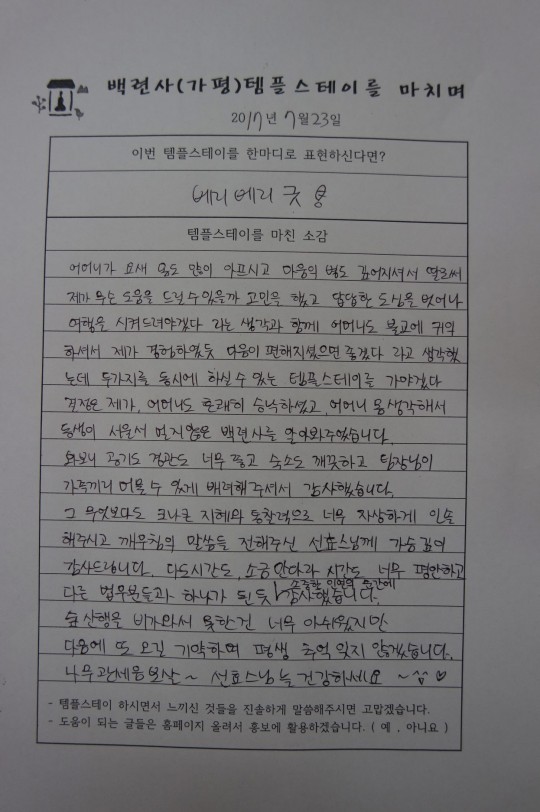 백련사(가평)템플스테이를 마치며
2017년 7월 23일
이번 템플스테이를 한마디로 표현하신다면?
베리 베리 굿 용
템플스테이를 마친 소감
어머니가 요새 몸도 많이 아프시고 마음의 병도 깊어지셔서 딸로써
제가 무슨 도움을 드릴 수 있을까 고민을 했고 답답한 도심을 벗어나
여행을 시켜드려야겠다 라는 생각과 함께 어머니도 불교에 귀의
하셔서 제가 경험하였듯 마음이 편해지셨으면 좋겠다 라고 생각했
는데 두가지를 동시에 하실 수 있는 템플스테이를 가야겠다
결정은 제가, 어머니도 흔쾌히 승낙하셨고, 어머니 몸 생각해서
동생이 서울서 멀지않은 백련사를 알아봐주었습니다.
와보니 공기도 경관도 너무 좋고 숙소도 깨끗하고 팀장님이
가족끼리 머물 수 있게 배려해 주셔서 감사했습니다.
그 무엇보다도 크나큰 지혜와 통찰력으로 너무 자상하게 인솔
해주시고 깨우침의 말씀들 전해주신 선효스님께 가슴깊이
감사드립니다. 다도시간도, 소금만다라 시간도 너무 평안하고
다른 법우분들과 하나가 된 듯 소중한 인연의 순간에 감사했습니다.
숲 산행을 비가와서 못한건 너무 아쉬웠지만
다음에 또 오길 기약하며 평생 추억 잊지 않겠습니다.
나무관세음보살~ 선효스님 늘 건강하세요 ~^^♡
- 템플스테이 하시면서 느끼신 것들을 진솔하게 말씀해주시면 고맙겠습니다.
- 도움이 되는 글들은 홈페이지 올려서 홍보에 활용하겠습니다. ( 예 , 아니요 )